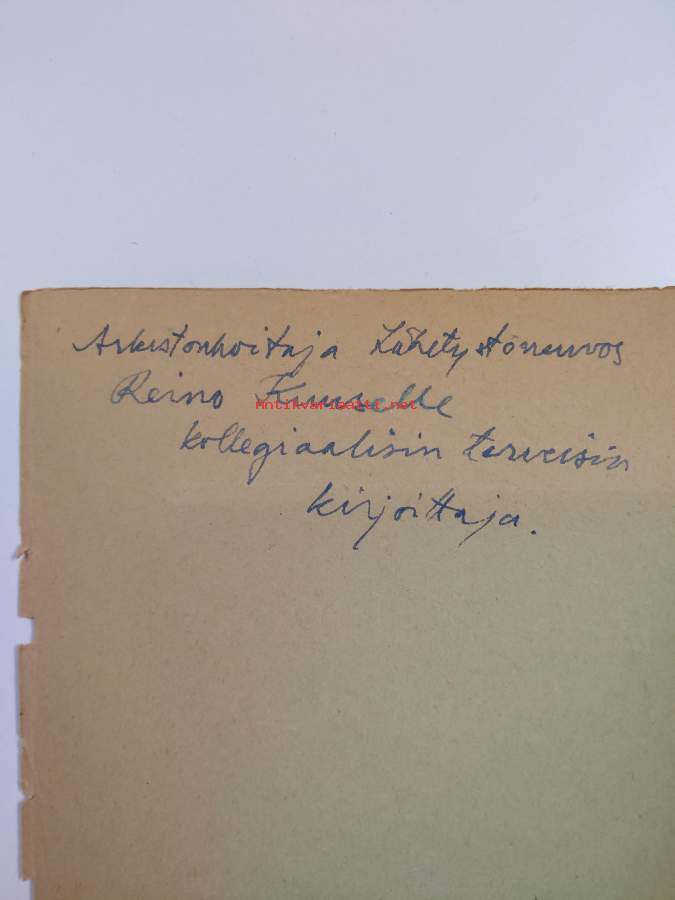 Arkistonhoitaja Lähetystöneuvos
Reino
Antikvariaatti.net
kollegiaalisin terveisin
kirjoittaja.